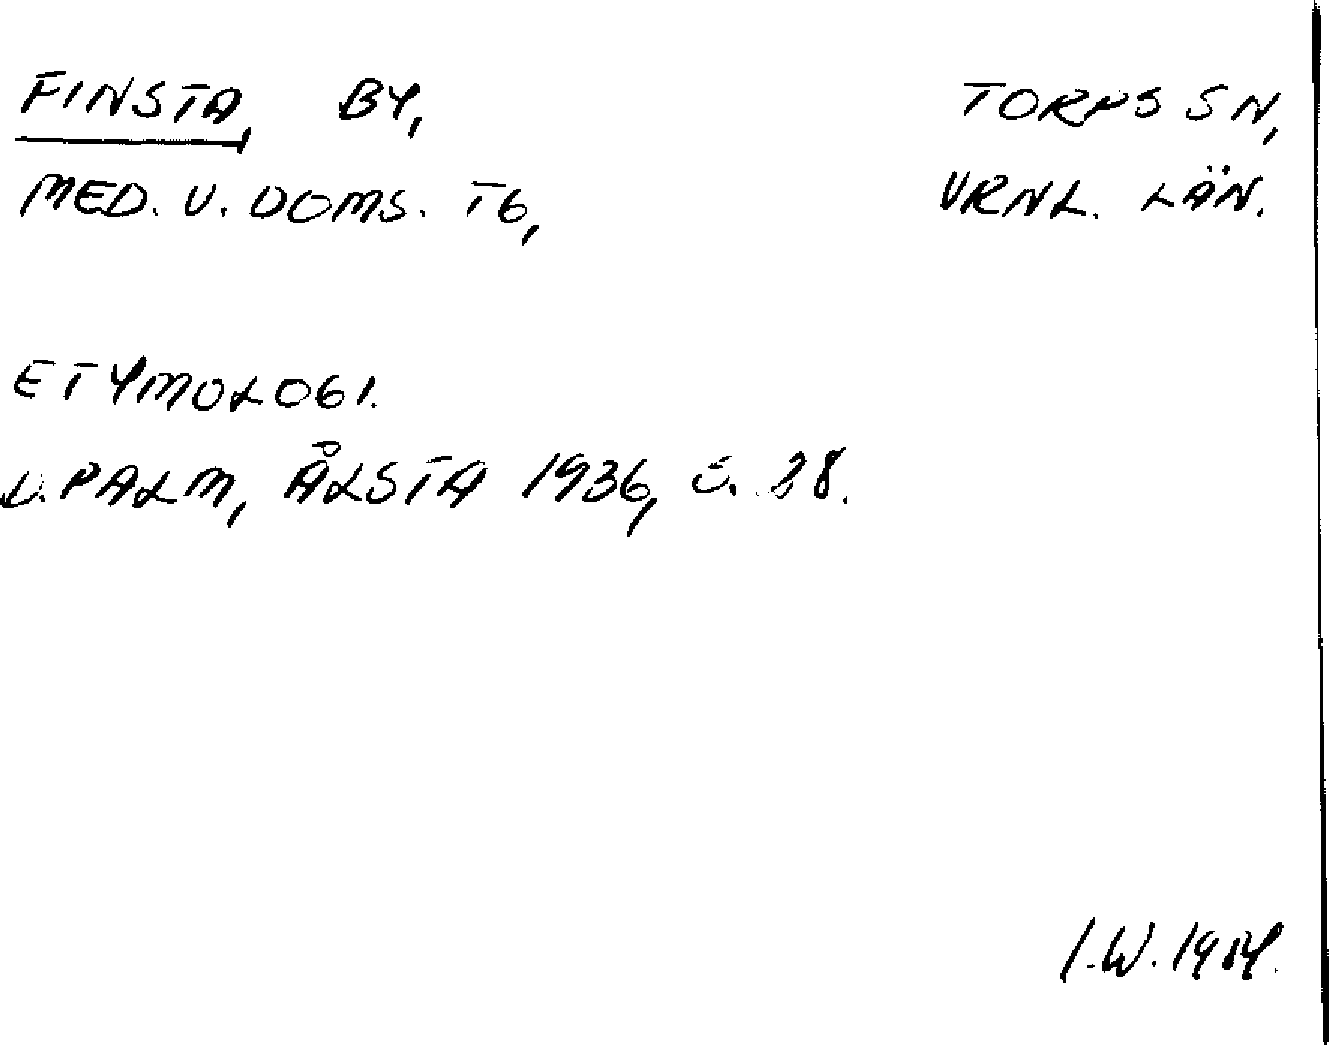 FINSTA, BY, TORPS SN,
MED. V. DOMS. TG, VRNL. LÄN.
ETYMOLOGI.
PALM, ÅLSTA 1936, S. 28.
I.W. 1984.